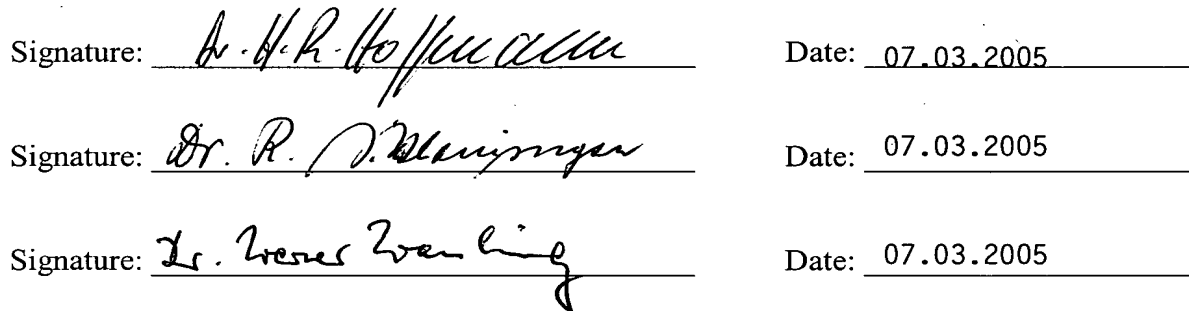 Signature: Dr. H.R. Hoffmann Date: 07.03.2005
Signature: Dr. R. Date: 07.03.2005
Signature: Dr. Werner Date: 07.03.2005